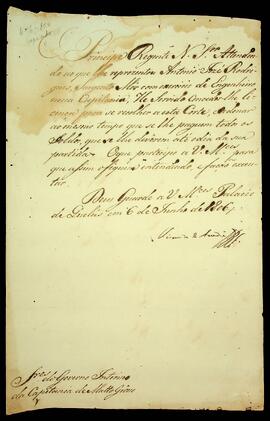 Principe Regente N. Sr. Attenden
do ao que lhe representou Antonio José Rodri
gues, Sargento Mor com exercicio de Engenheiro
nessa Capitania; He Servido Conceder lhe li
cença para se recolher a esta Corte, e
ao mesmo tempo que se lhe paguem todos os
Soldos, que se lhe deverem até o dia da sua
partida. O que participo a V. Mces para
que assim o fiquem entendendo, e fação execu
tar.
Deus Guarde a V. Mces Palacio
de Queluz em 6 de Junho de 1806
Visconde de Anadia
Sres do Governo Interino
da Capitania de Matto Grosso